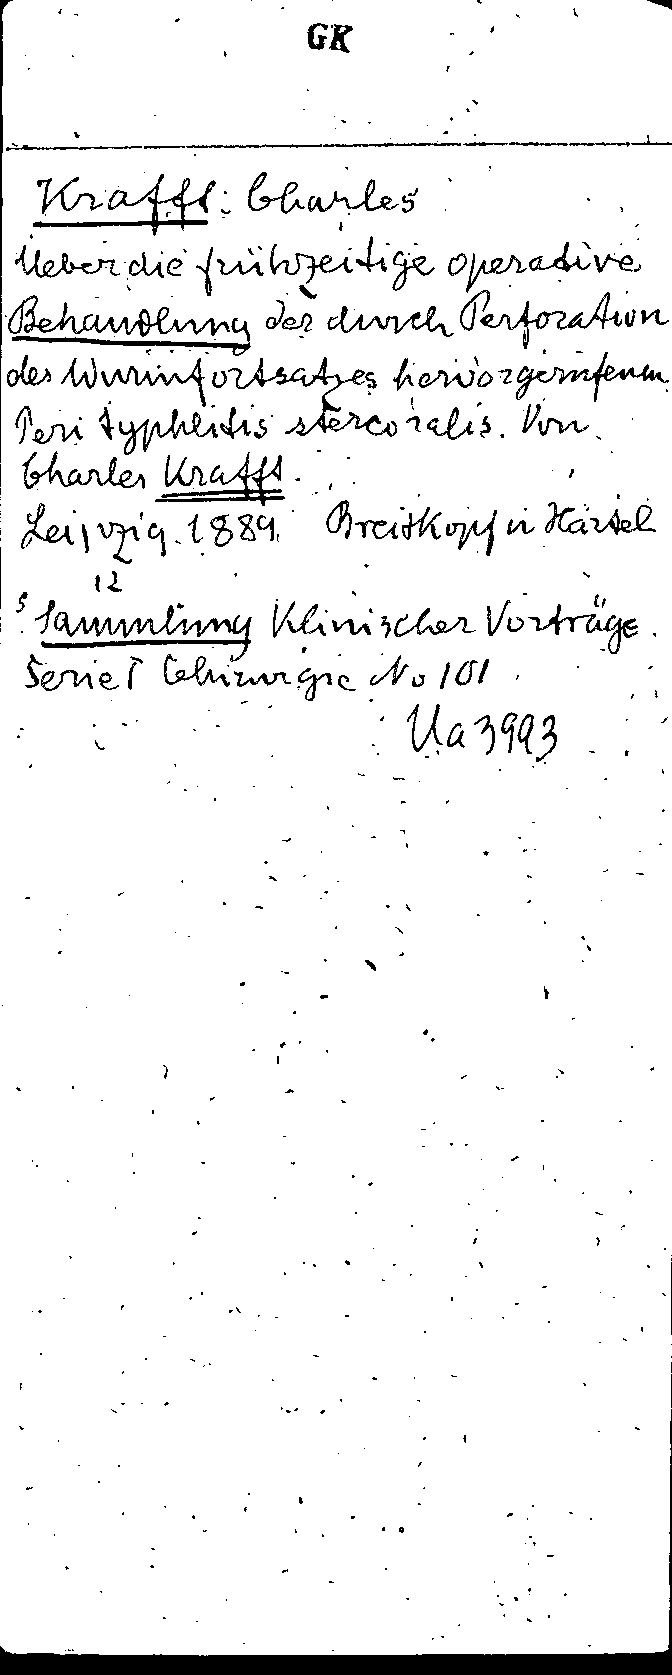 GK
Krafft: Charles
Ueber die frühzeitige operative
Behandlung der durch Perforation
des Wurmfortsatzes hervorgerufenen
Perityphlitis stercoralis. Von
Charles Krafft.
Leipzig. 1889. Breitkopf u Härtel
12
s Sammlung Klinischer Vorträge.
Serie I Chirurgie No 101
Ua 3993